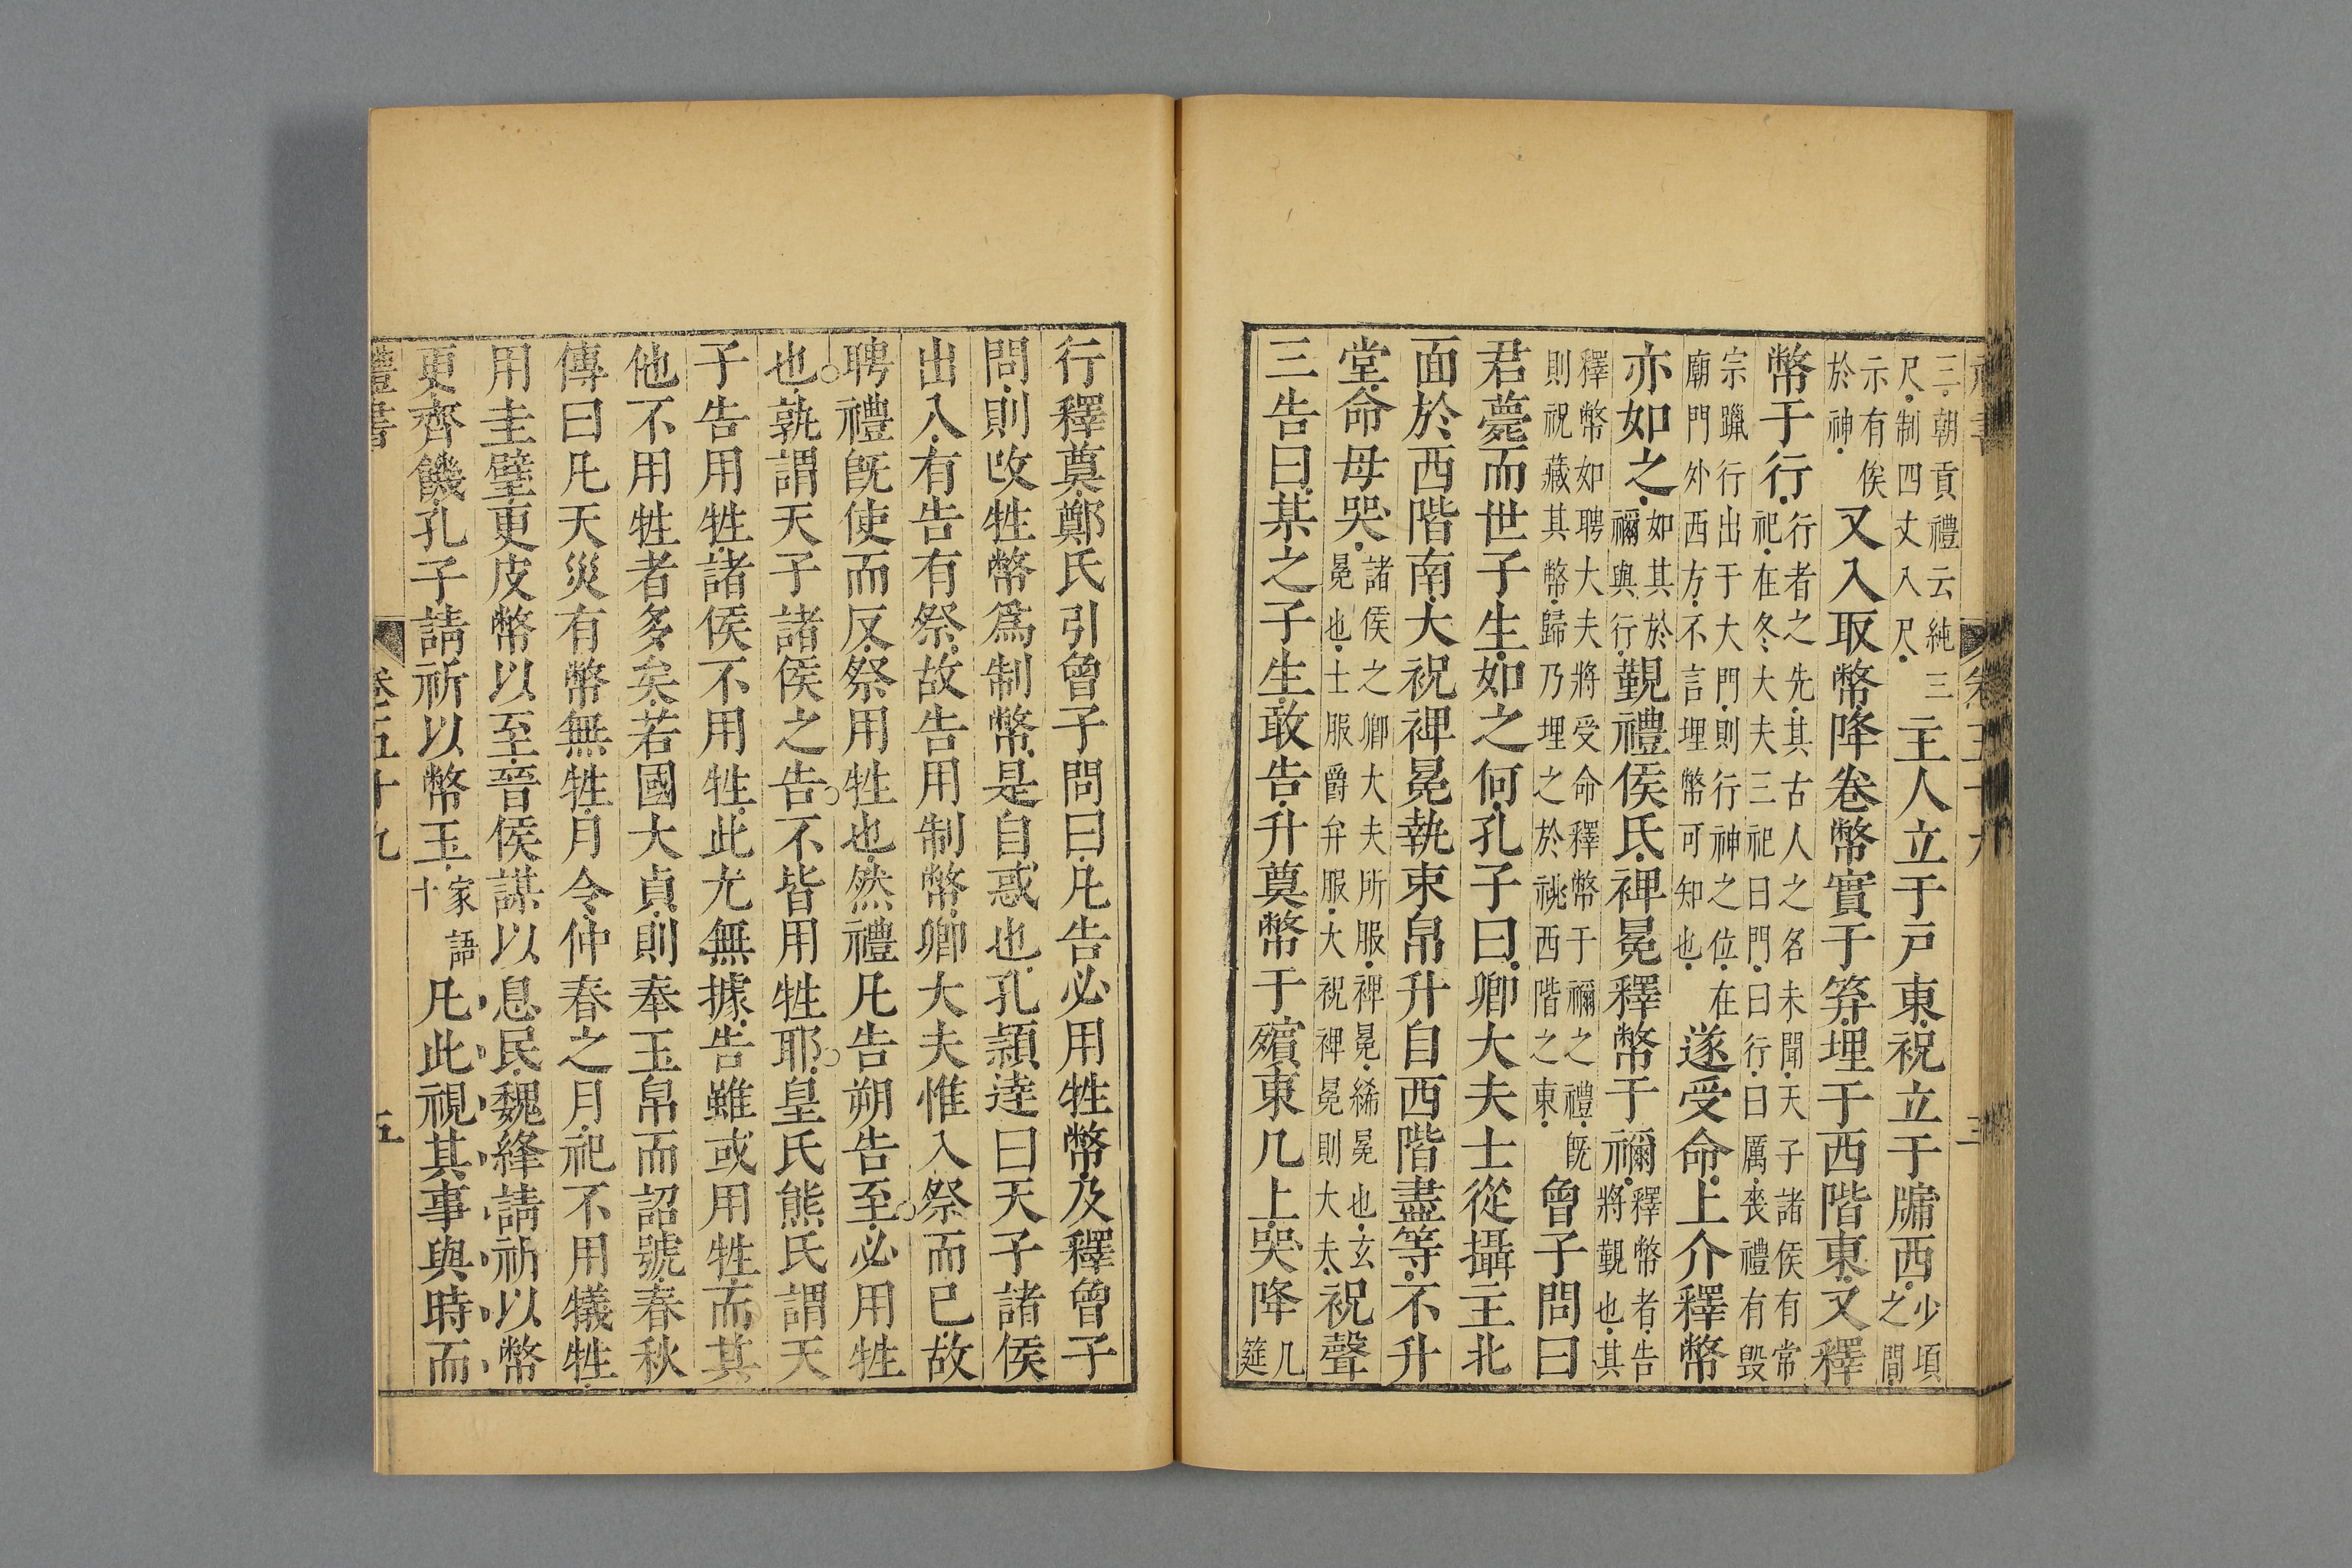 三朝貢禮云純三
尺制四丈八尺
主人立于戶東祝立于牖西
少頃
之間
示有俟
於神
又入取幣降卷幣實于笲埋于西階東又釋
幣于行
行者之先其古人之名未聞天子諸侯有常
祀在冬大夫三祀曰門曰行曰厲喪禮有毀
宗躐行出于大門則行神之位在
廟門外西方不言埋幣可知也
遂受命上介釋幣
亦如之
如其於
禰與行
覲禮侯氏裨冕釋幣于禰
釋幣者告
將覲也其
釋幣如聘大夫將受命釋幣于禰之禮既
則祝藏其幣歸乃埋之於祧西階之東
曾子問曰
君薨而世子生如之何孔子曰卿大夫士從攝主北
面於西階南大祝裨冕執束帛升自西階盡等不升
堂命母哭
諸侯之卿大夫所服裨冕絺冕也玄
冕也士服爵弁服大祝裨冕則大夫
祝聲
三告曰某之子生敢告升奠幣于殯東几上哭降
几
筵
行釋奠鄭氏引曾子問曰凡告必用牲幣及釋曾子
問則改牲幣爲制幣是自惑也孔穎達曰天子諸侯
出入有告有祭故告用制幣卿大夫惟入祭而已故
聘禮既使而反祭用牲也然禮凡告朔告至必用牲
也孰謂天子諸侯之告不皆用牲耶皇氏熊氏謂天
子告用牲諸侯不用牲此尤無據告雖或用牲而其
他不用牲者多矣若國大貞則奉玉帛而詔號春秋
傳曰凡天災有幣無牲月令仲春之月祀不用犧牲
用圭璧更皮幣以至晉侯謀以息民魏絳請祈以幣
更齊饑孔子請祈以幣玉
家語
十
凡此視其事與時而
禮書 卷五十九 五